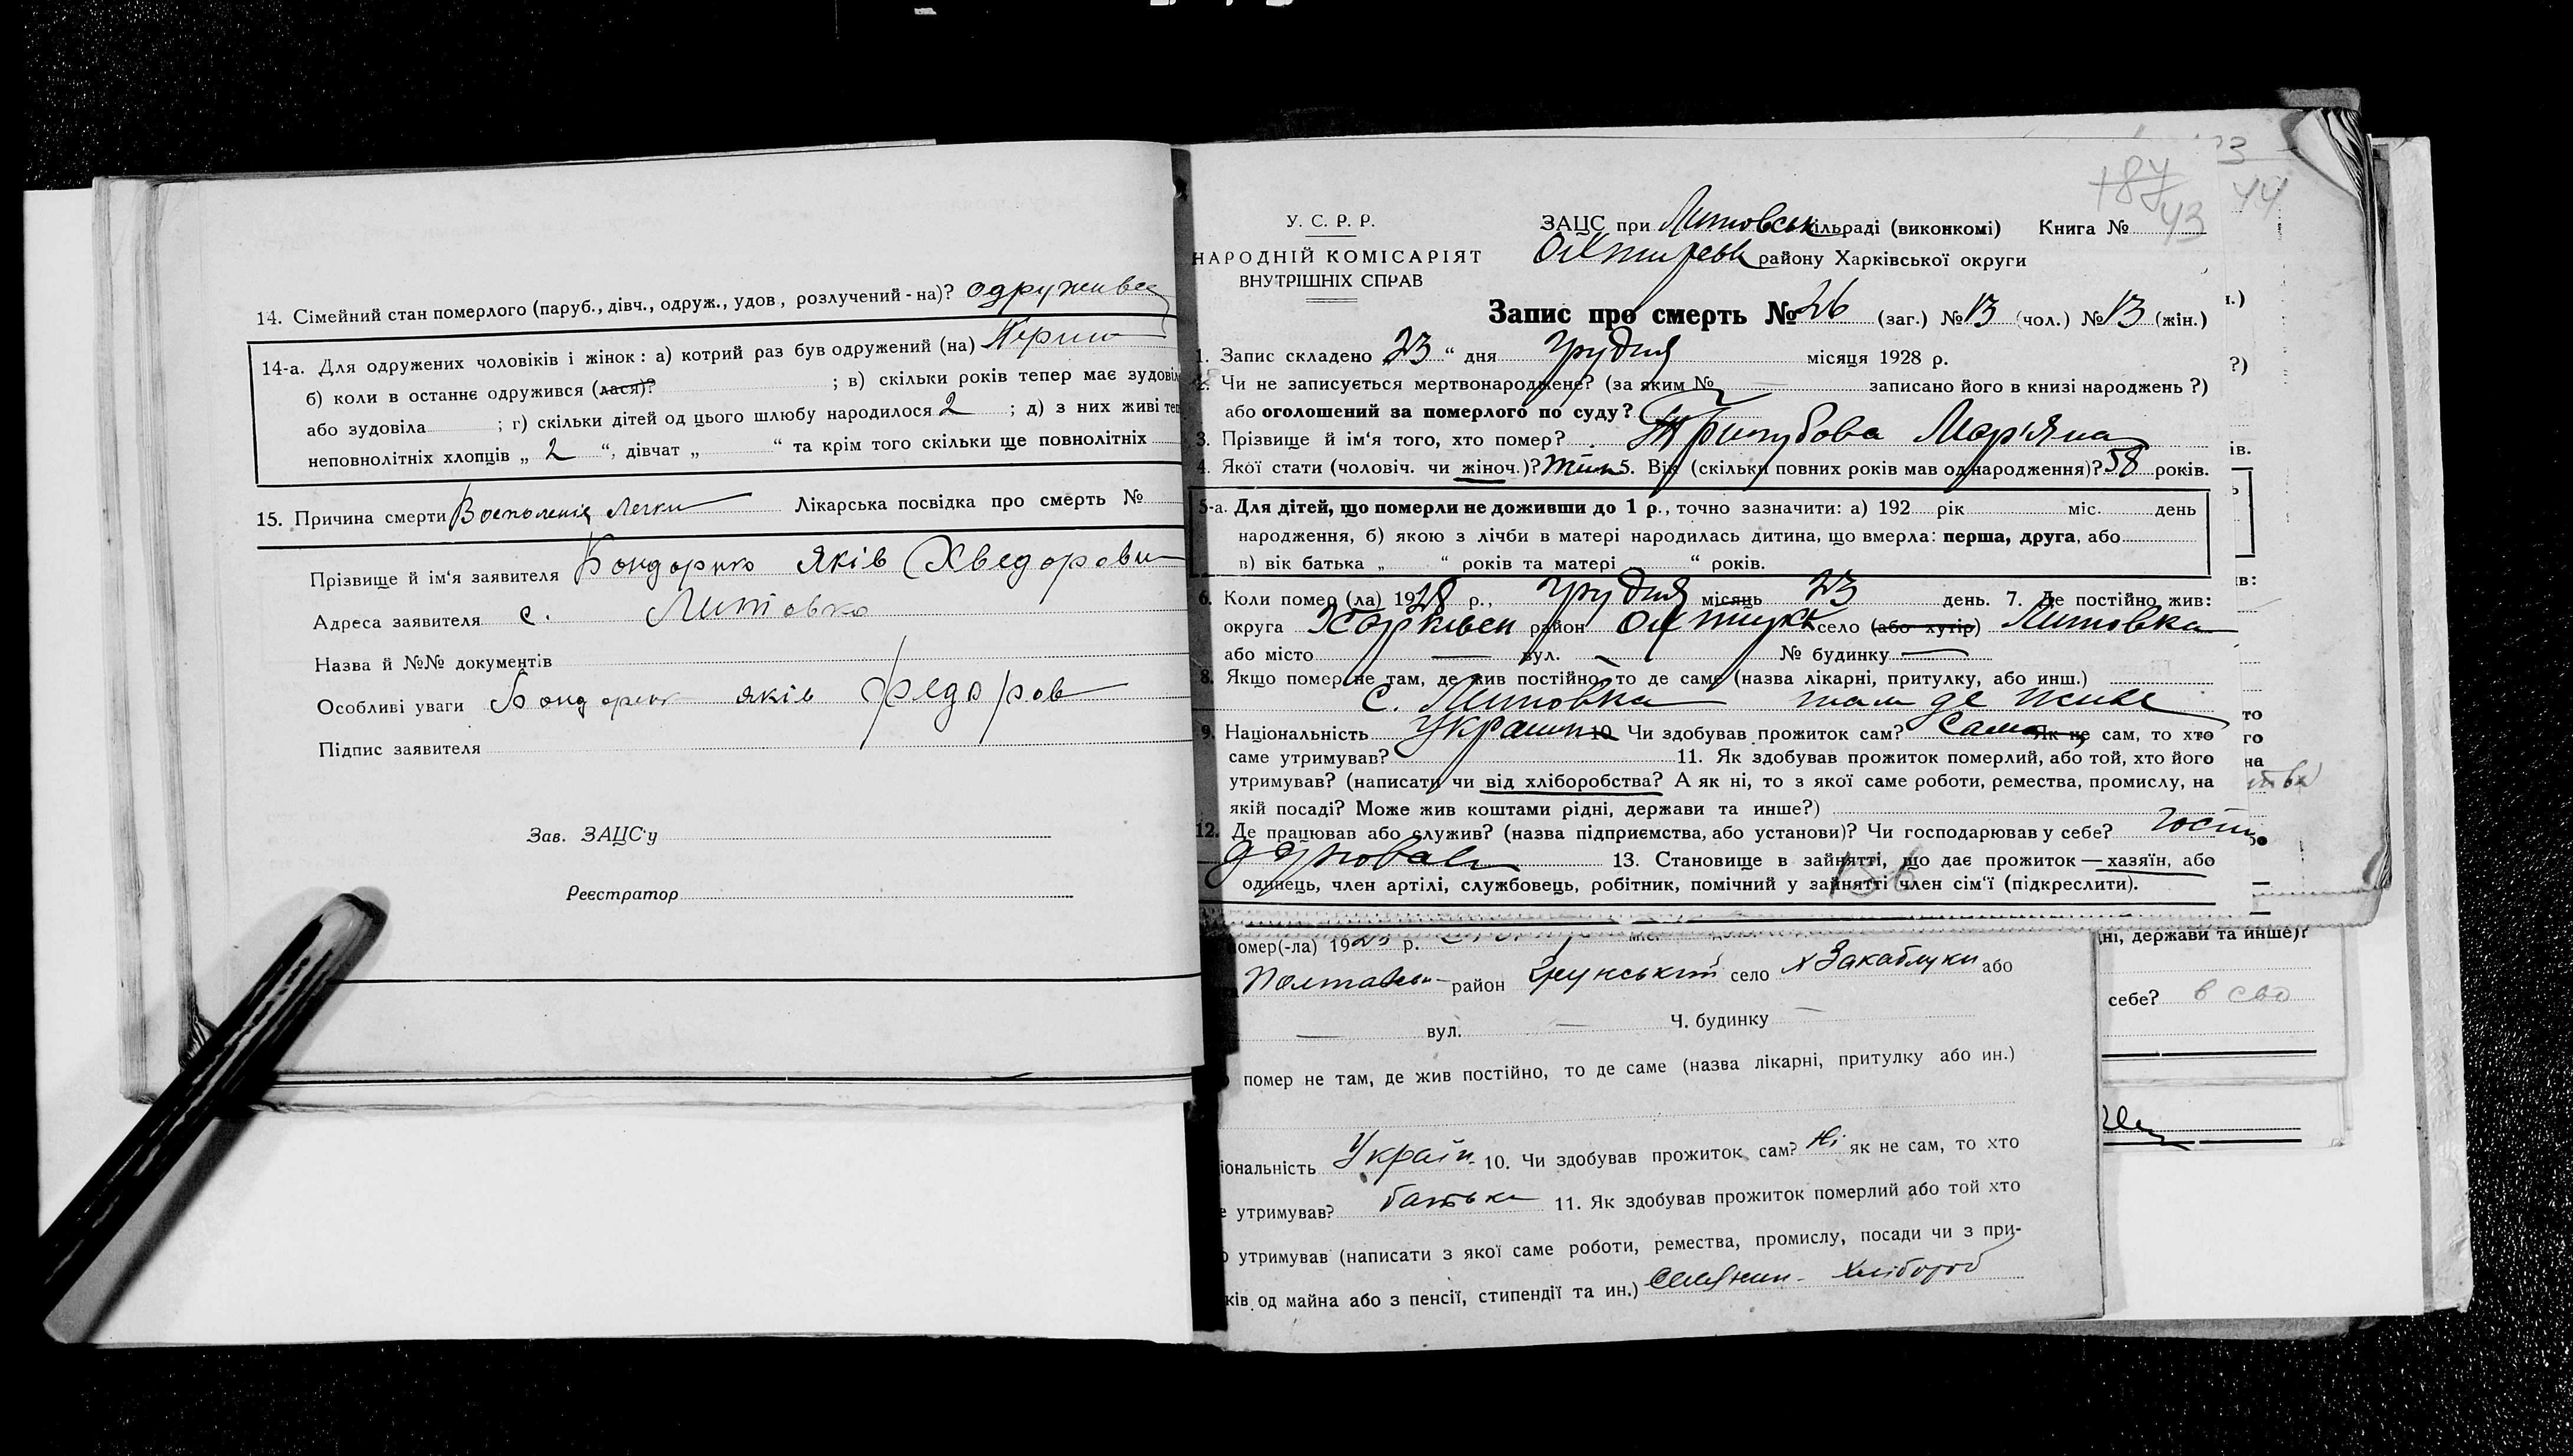 14. Сімейний стан померлого (паруб., дівч., одруж., удов, розлучений-на)? одружився
14-а. Для одружених чоловіків і жінок: а) котрий раз був одружений (на)
б) коли в останнє одружився (лася)? ; в) скільки років тепер має
або зудовіла ; г) скільки дітей од цього шлюбу народилося 2 ; д) з них живі
неповнолітніх хлопців „ 2 “, дівчат „ “ та крім того скільки ще повнолітніх
15. Причина смерти Воспаления Легки Лікарська посвідка про смерть №
Прізвище й ім'я заявителя Яків Хведорови
Адреса заявителя с. Литовка
Назва й №№ документів
Особливі уваги яків Федоров
Підпис заявителя
Зав. ЗАЦС'у
Реєстратор
187
43
44
У. С. Р. Р.
НАРОДНІЙ КОМІСАРІЯТ
ВНУТРІШНІХ СПРАВ
ЗАЦС при Литовськ сільраді (виконкомі) Книга №
району Харківської округи
Запис про смерть № 26 (заг.) № 13 (чол.) № 13 (жін.)
1. Запис складено 23 “ дня Грудня місяця 1928 р.
2. Чи не записується мертвонароджене? (за яким № записано його в книзі народжень ?)
або оголошений за померлого по суду?
3. Прізвище й ім'я того, хто помер? Мар'яна
4. Якої стати (чоловіч. чи жіноч.)? жін 5. Вік (скільки повних років мав од народження)? 58 років.
5-а. Для дітей, що померли не доживши до 1 р., точно зазначити: а) 192 рік міс. день
народження, б) якою з лічби в матері народилась дитина, що вмерла: перша, друга, або
в) вік батька „ “ років та матері “ років.
6. Коли помер (ла) 1928 р., Грудня місяць 23 день. 7. Де постійно жив:
округа Харківськ район село (або хутір) Литовка
або місто — вул. № будинку —
8. Якщо помер не там, де жив постійно, то де саме (назва лікарні, притулку, або инш.)
с. Литовка там де живе
9. Національність 10. Чи здобував прожиток сам? Сама Як не сам, то хто
саме утримував? 11. Як здобував прожиток померлий, або той, хто його
утримував? (написати чи від хліборобства? А як ні, то з якої саме роботи, ремества, промислу, на
якій посаді? Може жив коштами рідні, держави та инше?)
12. Де працював або служив? (назва підприємства, або установи)? Чи господарював у себе?
13. Становище в зайнятті, що дає прожиток — хазяїн, або
одинець, член артілі, службовець, робітник, помічний у зайнятті член сім'ї (підкреслити).
помер(-ла) 192 р.
район Грунський село х Закаблуки або
— вул. — Ч. будинку —
помер не там, де жив постійно, то де саме (назва лікарні, притулку або ин.)
Україн- 10. Чи здобував прожиток сам? Ні як не сам, то хто
утримував? батько 11. Як здобував прожиток померлий або той хто
утримував (написати з якої саме роботи, ремества, промислу, посади чи з при-
од майна або з пенсії, стипендії та ин.) Селянин- Хлібороб
держави та инше)?
себе? в сво